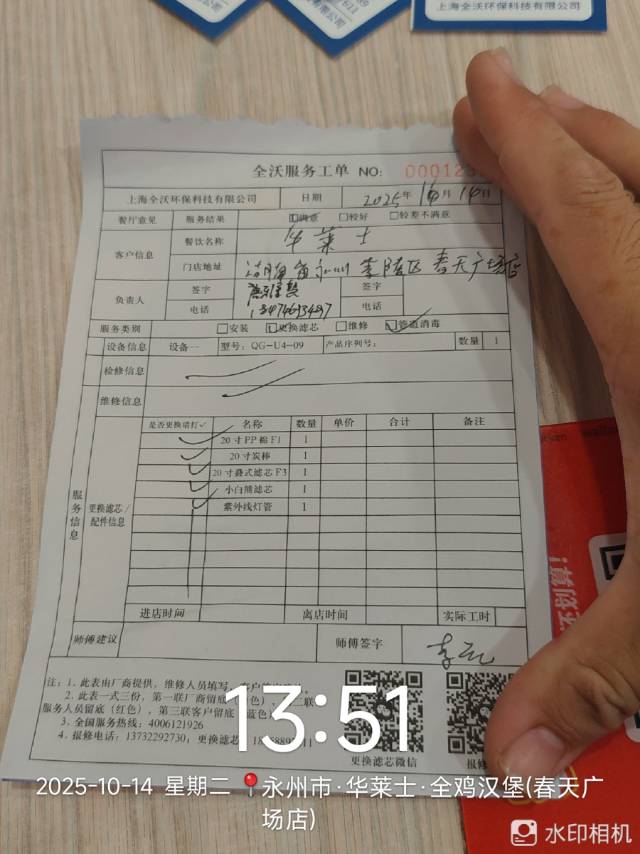 上海全沃环保科技有限公司
全沃服务工单 NO:
上海全沃环保科技有限公司 日期 2025年10月14日
餐厅意见 服务结果 满意 较好 较差不满意
客户信息 餐饮名称 华莱士
门店地址 湖南省永州 零陵区 春天广场店
负责人 签字 签字
电话 电话
服务类别 安装 更换滤芯 维修 管道消毒
设备信息 设备一 型号: QG-U4-09 产品序列号: 数量 1
检修信息
维修信息
服务信息 更换滤芯/配件信息
是否更换请打✓ 名称 数量 单价 合计 备注
20寸PP棉F1 1
20寸炭棒 1
20寸叠式滤芯F3 1
小白熊滤芯 1
紫外线灯管 1
进店时间 离店时间 实际工时
师傅建议 师傅签字
注: 1. 此表由厂商提供, 维修人员填写,
2. 此表一式三份, 第一联厂商留底
服务人员留底(红色), 第三联客户留底
3. 全国服务热线: 4006121926
4. 报修电话: 13732292730; 更换滤芯
更换滤芯微信 报修
13:51
2025-10-14 星期二 永州市·华莱士·全鸡汉堡(春天广
场店)
水印相机